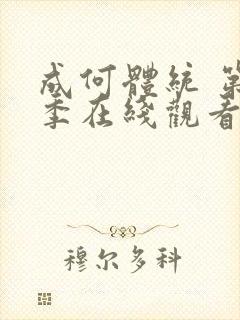 成何體統 第
季在綫觀看
穆尔多科